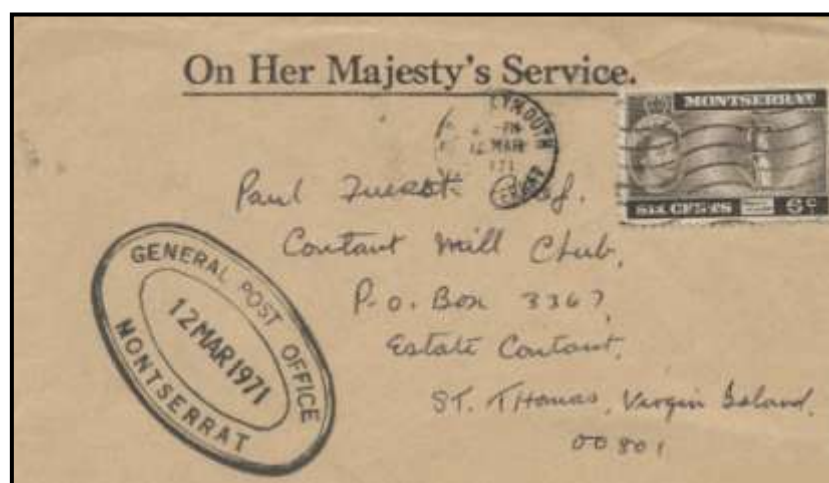 On Her Majesty's Service.
MONTSERRAT
SIX CENTS 6c
MOUTH
12 MAR
Paul
Contant Mill Club,
P.O. Box 3367,
Estate Contant,
ST. THomas, Virgin Island,
00801
GENERAL POST OFFICE
12 MAR 1971
MONTSERRAT